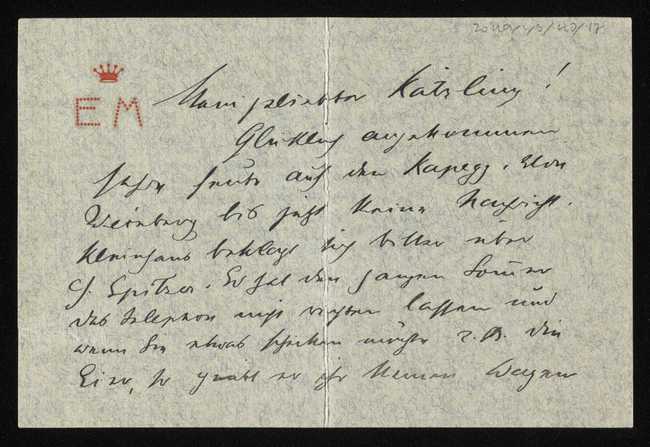 EM
Mein geliebter Kätzling!
Glücklich angekommen
fahre heute auf den Kapegg. Von
Weinberg bis jetzt keine Nachricht.
Kleinhans beklagt sich bitter über
Spitzer. Er hat den ganzen Sommer
das Telephon nicht richten lassen und
wenn Sie etwas schicken möchte z. B. den
so er ihr keinen Wagen